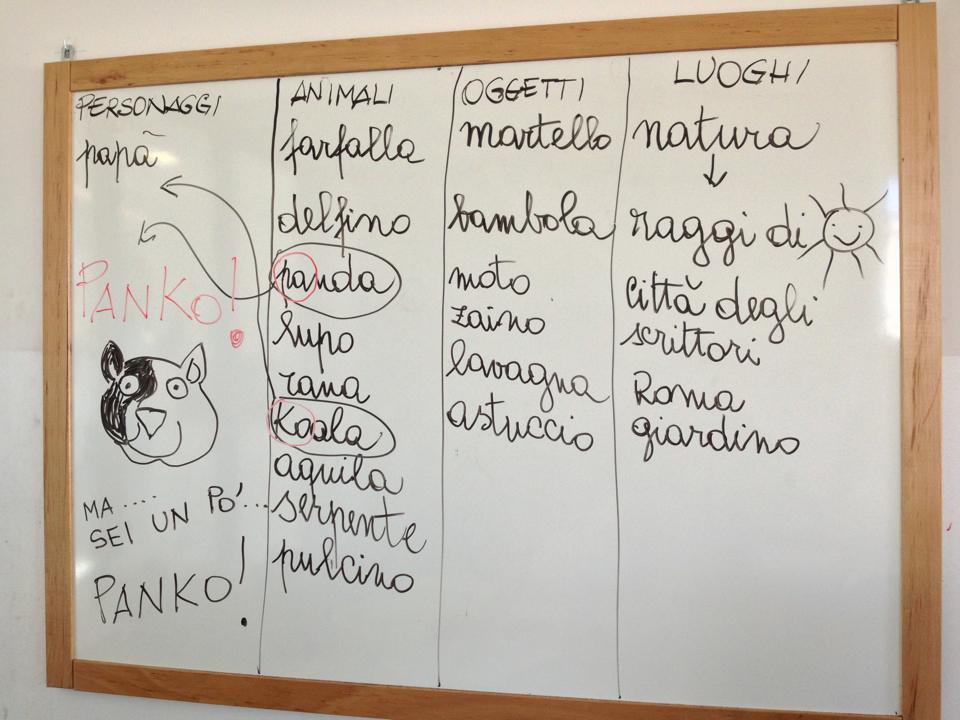 PERSONAGGI
papà
PANKO!
MA ....
SEI UN PO'...
PANKO!
ANIMALI
farfalla
delfino
panda
lupo
rana
Koala
aquila
serpente
pulcino
OGGETTI
martello
bambola
moto
zaino
lavagna
astuccio
LUOGHI
natura
raggi di
Città degli
scrittori
Roma
giardino